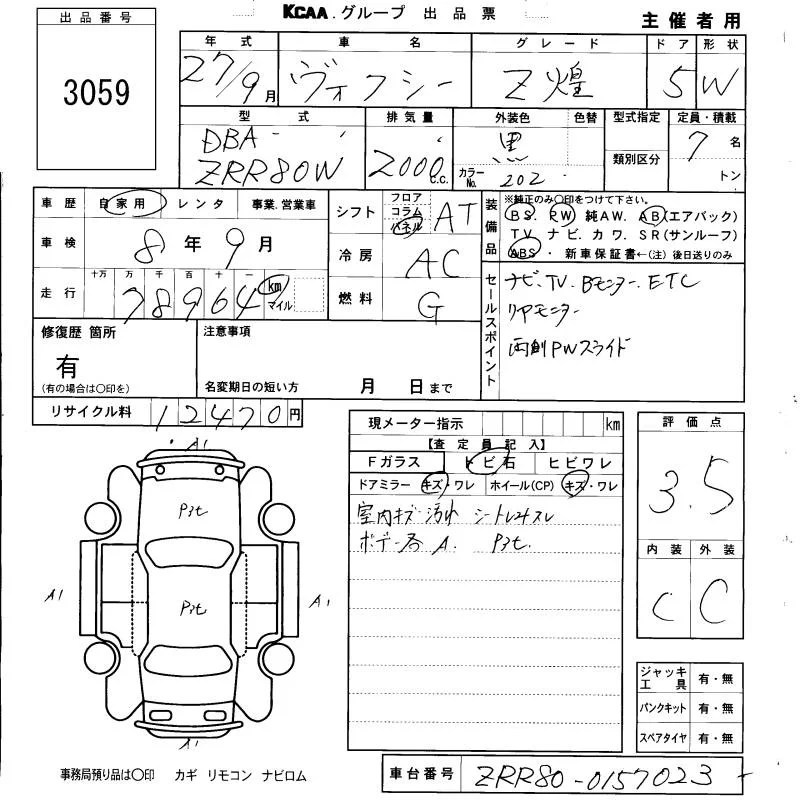 出品番号
3059
KCAA.グループ 出品票
主催者用
年式 車名 グレード ドア 形状
27/9月 ヴォクシー Z煌 5 W
型式 排気量 外装色 色替 型式指定 定員・積載
DBA-
ZRR80W 2000 c.c. 黒 類別区分 7名
カラーNo. 202 トン
車歴 自家用 レンタ 事業.営業車
車検 8年9月
走行 十万 万 千 百 十 一
78964 km マイル
シフト フロア コラム パネル AT
冷房 AC
燃料 G
装備品 ※純正のみ○印をつけて下さい。
BS. PW 純AW. AB(エアバック)
TV ナビ. カワ. SR(サンルーフ)
ABS ・ 新車保証書←(注) 後日送りのみ
セールスポイント
ナビ、TV、Bモニター、ETC
リヤモニター
両側PWスライド
修復歴 箇所
有
(有の場合は○印を)
注意事項
名変期日の短い方 月 日まで
リサイクル料 12470円
現メーター指示 km
【査定員記入】
Fガラス トビ石 ヒビワレ
ドアミラー キズ・ワレ ホイール(CP) キズ・ワレ
室内キズ 汚れ シートレススレ
ボデー各A. P3t.
評価点
3.5
内装 外装
C C
ジャッキ工具 有・無
パンクキット 有・無
スペアタイヤ 有・無
A1
P3t
A1 P3t A1
A1
事務局預り品は○印 カギ リモコン ナビロム
車台番号 ZRR80-0157023